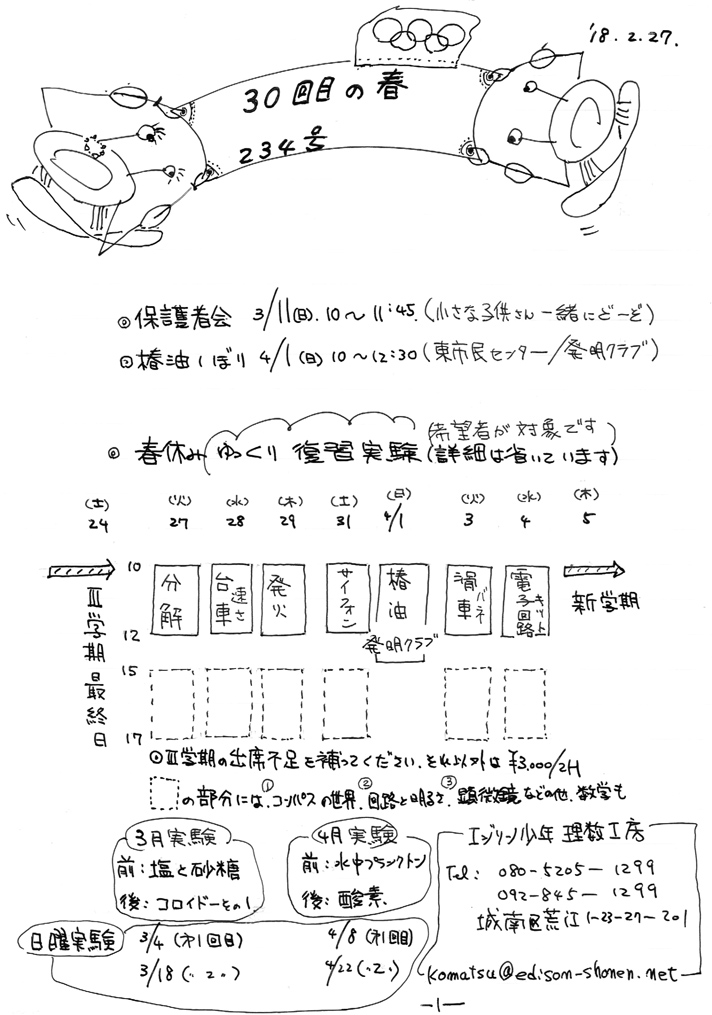 '18.2.27.
30回目の春
234号
◎保護者会 3/11(日).10〜11:45.(小さな子供さん一緒にどーぞ)
◎椿油しぼり 4/1(日)10〜12:30(東市民センター/発明クラブ)
(希望者が対象です)
◎春休みゆっくり復習実験(詳細は省いています)
(土) (火) (水) (木) (土) (日) (火) (水) (木)
24 27 28 29 31 4/1 3 4 5
10
分解 台車速さ 発火 サイフォン 椿油 滑車バネ 電子回路キット
新学期
12
発明クラブ
Ⅲ学期最終日
15
17
◎Ⅲ学期の出席不足を補ってください.それ以外は¥3,000/2H
の部分には、①コンパスの世界.②回路と明るさ.③顕微鏡などの他.数学も
3月実験
前:塩と砂糖
後:コロイドーその1
4月実験
前:水中プランクトン
後:酸素.
日曜実験
3/4(才1回目) 4/8(才1回目)
3/18(〃2〃) 4/22(〃2〃)
エジソン少年 理数工房
Tel: 080-5205-1299
092-845-1299
城南区荒江1-23-27-201
komatsu@edison-shonen.net
-1-